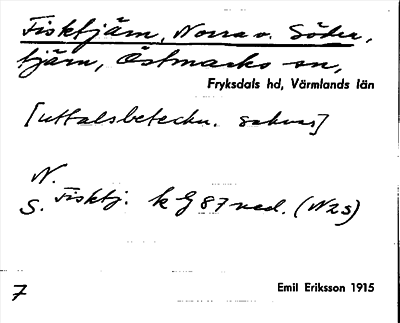 Fisktjärn, Norra o. Södra,
tjärn, Östmarks sn,
Fryksdals hd, Värmlands län
[uttalsbeteckn. saknas]
N.
S. Fisktj. k G 87 ned. (N2s)
7
Emil Eriksson 1915